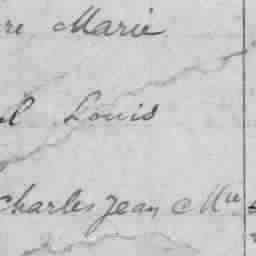 re Marie
l Louis
Charles Jean M